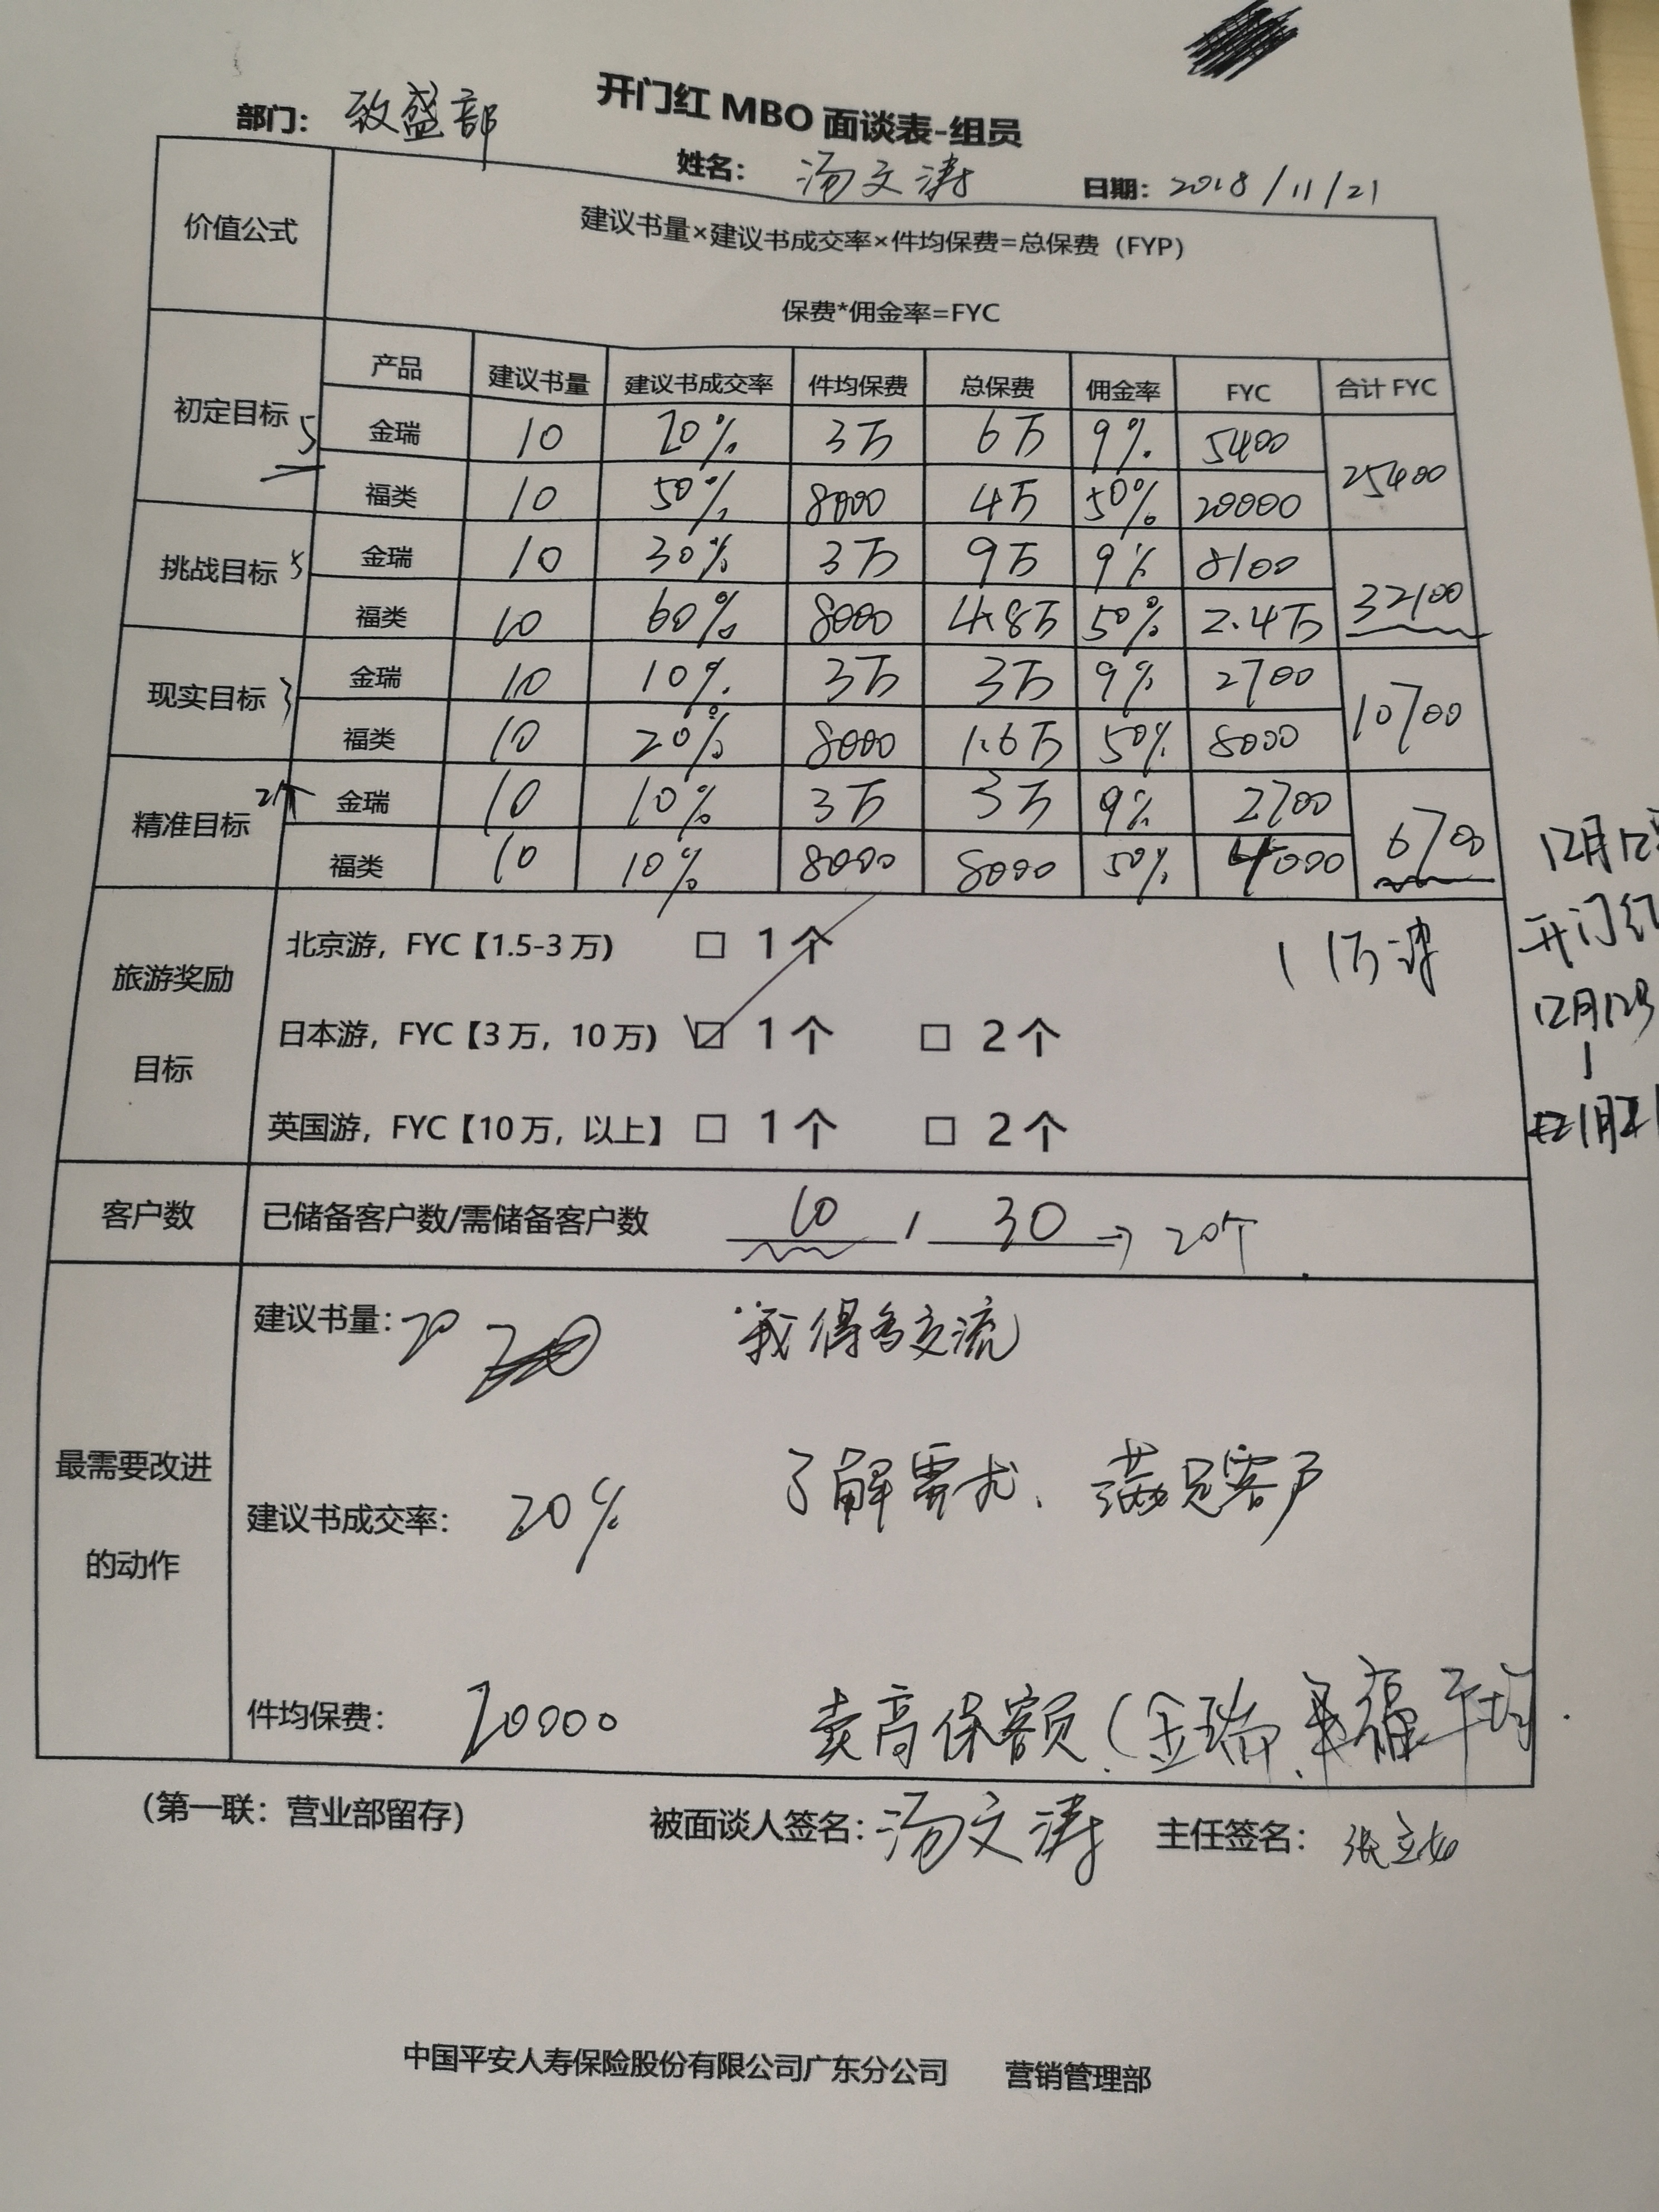 开门红 MBO 面谈表-组员
部门： 致盛部 姓名： 汤文涛 日期：2018/11/21
价值公式 建议书量×建议书成交率×件均保费=总保费（FYP）
保费*佣金率=FYC
产品 建议书量 建议书成交率 件均保费 总保费 佣金率 FYC 合计 FYC
初定目标 5 金瑞 10 20% 3万 6万 9% 5400 25400
福类 10 50% 8000 4万 50% 20000
挑战目标 金瑞 10 30% 3万 9万 9% 8100 32100
福类 10 60% 8000 4.8万 50% 2.4万
现实目标 3 金瑞 10 10% 3万 3万 9% 2700 10700
福类 10 20% 8000 1.6万 50% 8000
精准目标 2个 金瑞 10 10% 3万 3万 9% 2700 6700
福类 10 10% 8000 8000 50% 4000
12月12号
开门红
12月12号
旅游奖励
目标
北京游，FYC【1.5-3 万） □ 1 个
日本游，FYC【3 万，10 万） ☑ 1 个 □ 2 个
英国游，FYC【10 万，以上】 □ 1 个 □ 2 个
客户数 已储备客户数/需储备客户数 10 / 30 → 20个
最需要改进
的动作
建议书量：20 我得多交流
建议书成交率： 20% 了解需求、满足客户
件均保费： 20000 卖高保额（金瑞、幸福平均
（第一联：营业部留存） 被面谈人签名：汤文涛 主任签名：
中国平安人寿保险股份有限公司广东分公司 营销管理部